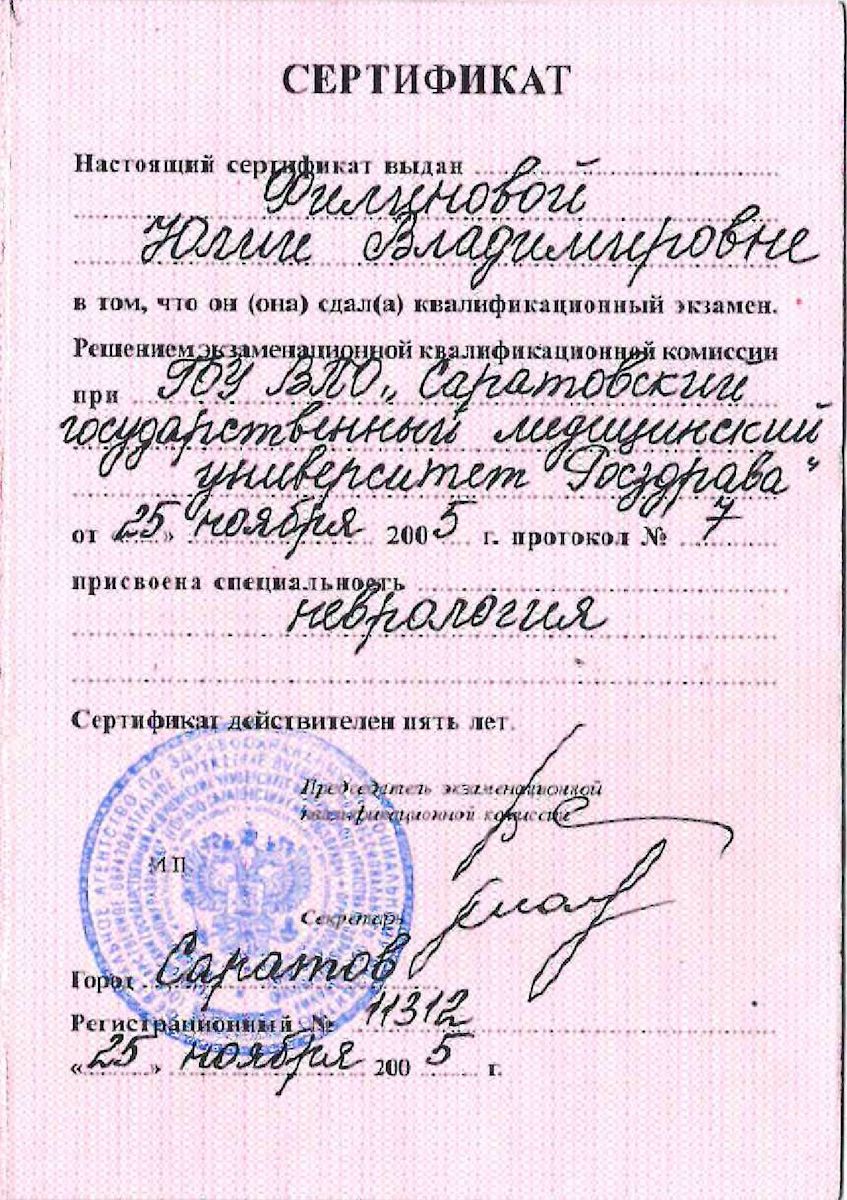 СЕРТИФИКАТ
Настоящий сертификат выдан
Юлии Владимировне
в том, что он (она) сдал(а) квалификационный экзамен.
Решением экзаменационной квалификационной комиссии
при ГОУ ВПО „Саратовский
государственный медицинский
университет Росздрава"
от «25» ноября 2005 г. протокол № 7
присвоена специальность
неврология
Сертификат действителен пять лет.
Председатель экзаменационной
квалификационной комиссии
М.П.
Секретарь
Город Саратов
Регистрационный № 11312
«25» ноября 2005 г.